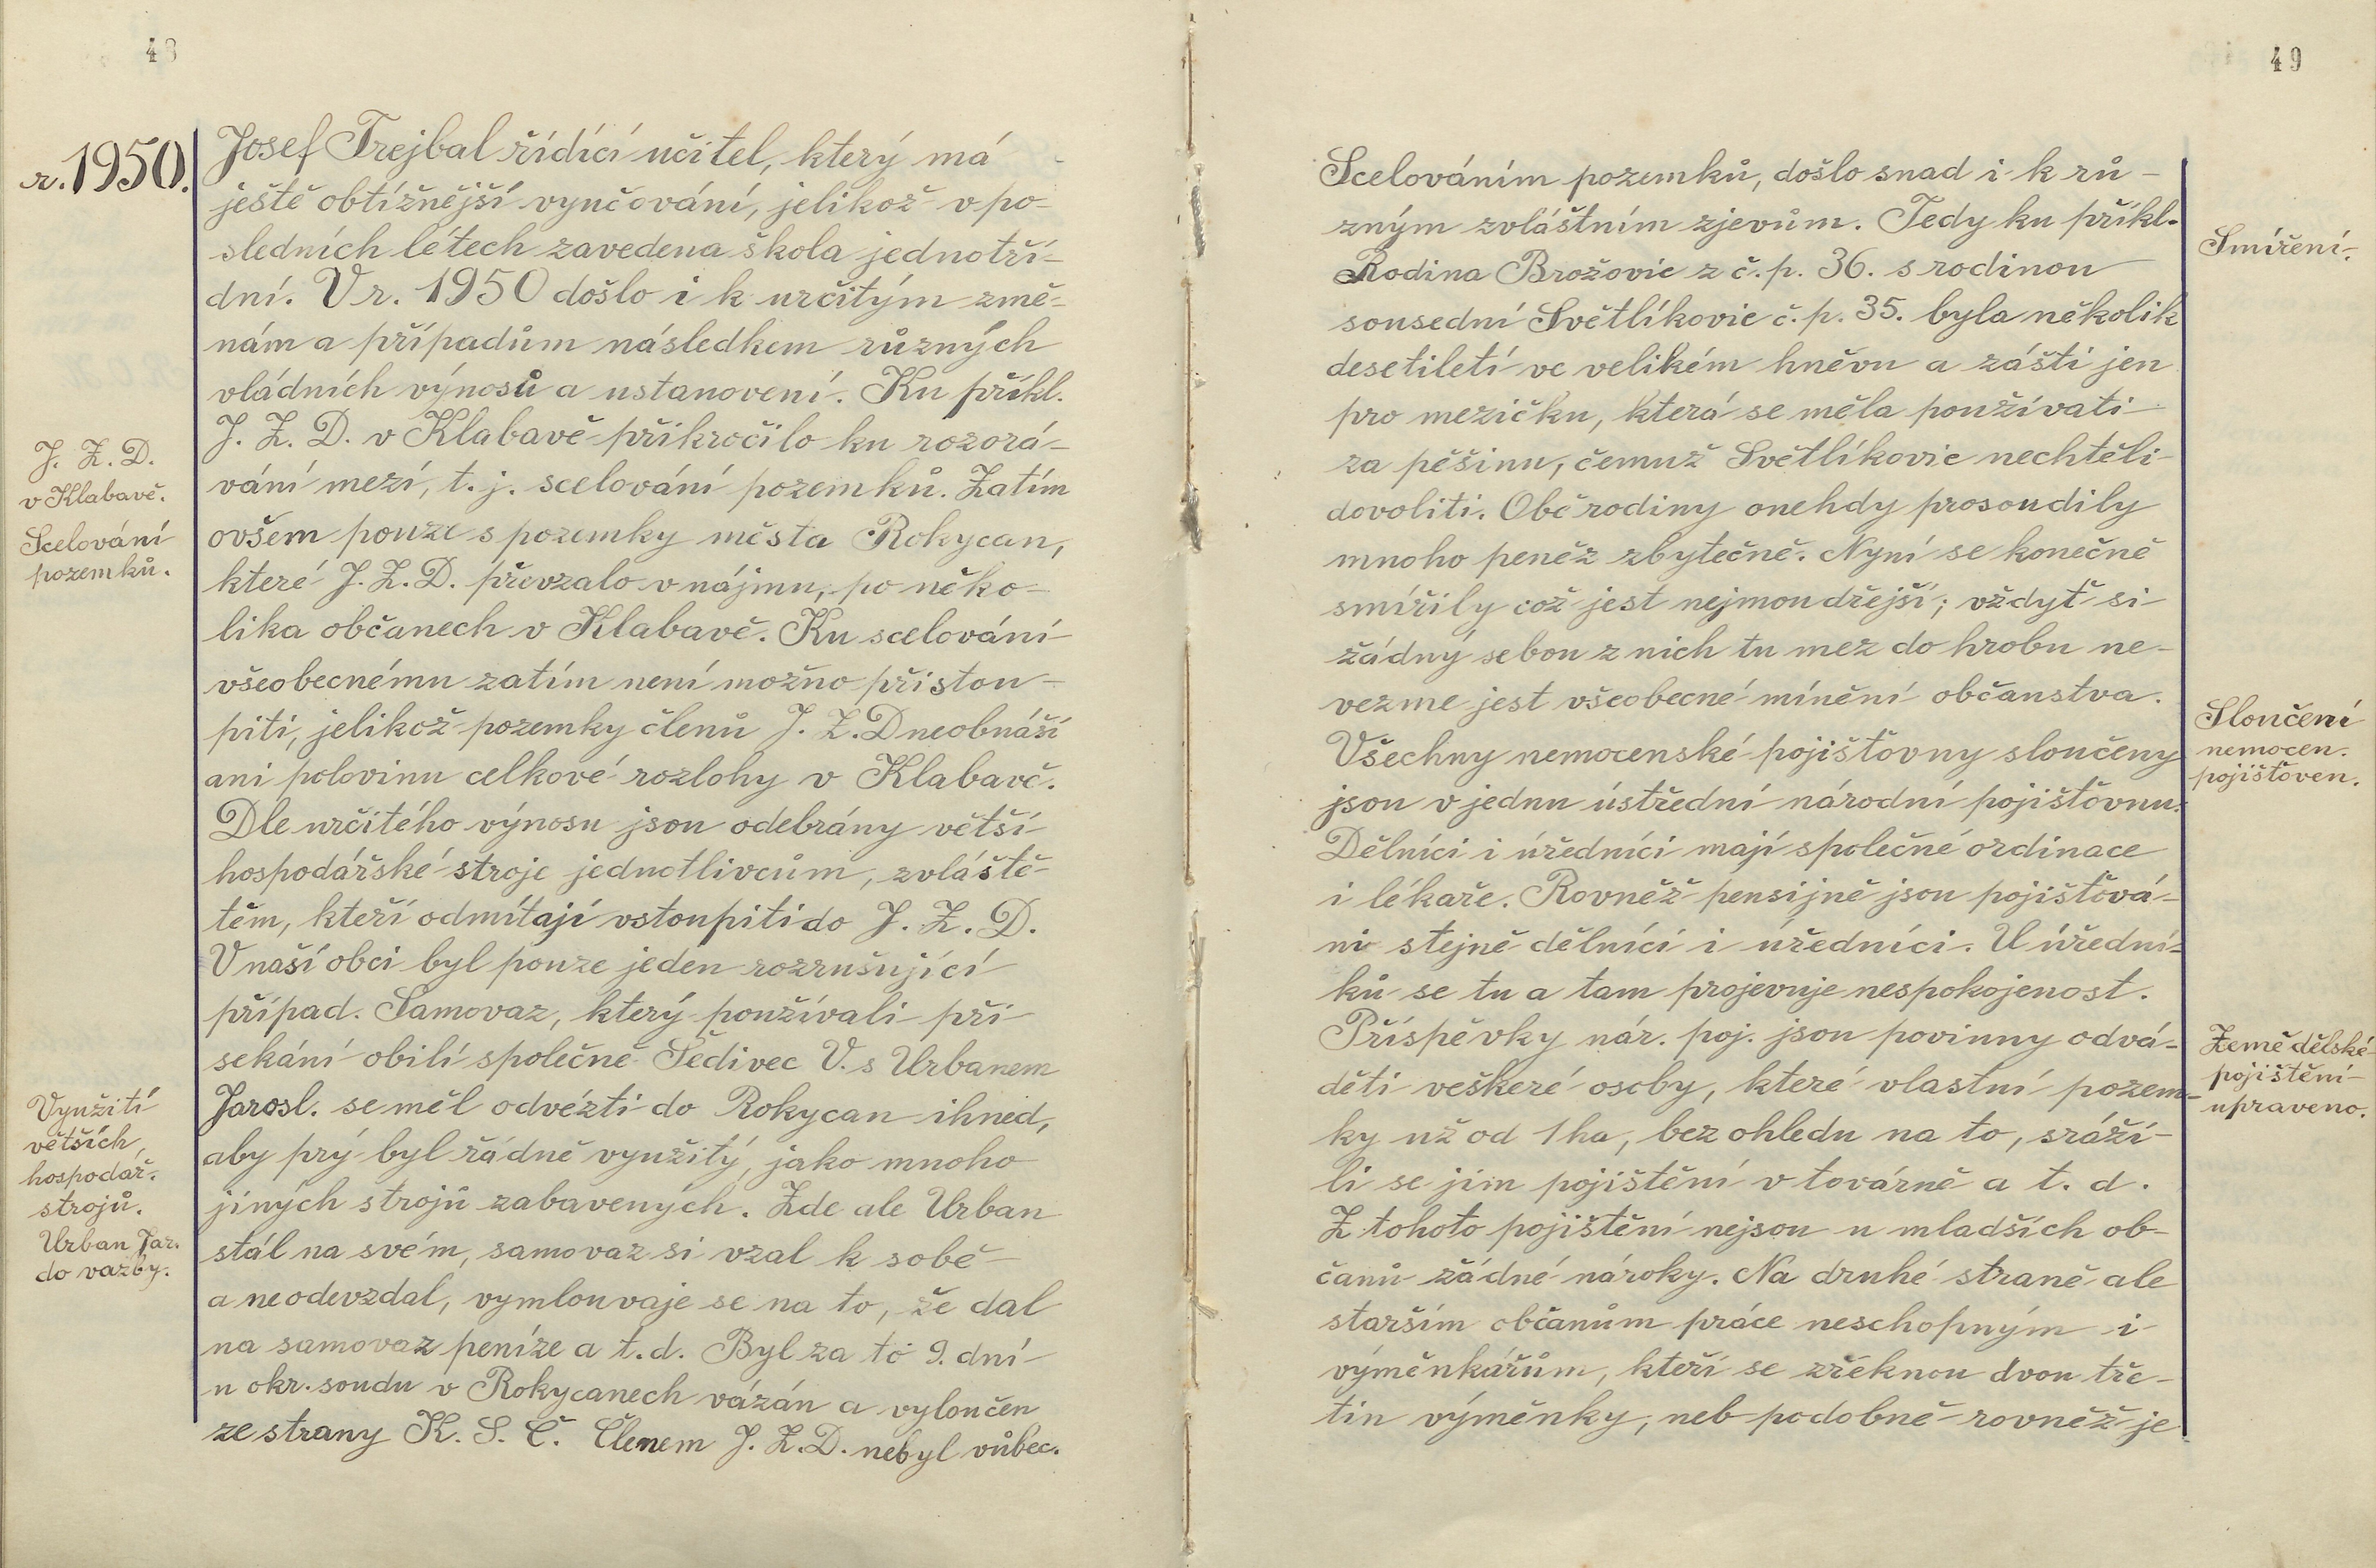 48
r. 1950.
Josef Trejbal řídící učitel, který má
ještě obtížnější vyučování, jelikož v po-
sledních létech zavedena škola jednotří-
dní. V r. 1950 došlo i k určitým změ-
nám a případům následkem různých
vládních výnosů a ustanovení. Ku příkl.
J. Z. D. v Klabavě přikročilo ku rozorá-
vání mezí, t. j. scelování pozemků. Zatím
ovšem pouze s pozemky města Rokycan,
které J. Z. D. převzalo v nájmu, po něko-
lika občanech v Klabavě. Ku scelování
všeobecnému zatím není možno přistou-
piti, jelikož pozemky členů J. Z. D neobnáší
ani polovinu celkové rozlohy v Klabavě.
Dle určitého výnosu jsou odebrány větší
hospodářské stroje jednotlivcům, zvláště
těm, kteří odmítají vstoupiti do J. Z. D.
V naší obci byl pouze jeden rozrušující
případ. Samovaz, který používali při
sekání obilí společně Šedivec V. s Urbanem
Jarosl. se měl odvézti do Rokycan ihned,
aby prý byl řádně využitý, jako mnoho
jiných strojů zabavených. Zde ale Urban
stál na svém, samovaz si vzal k sobě
a neodevzdal, vymlouvaje se na to, že dal
na samovaz peníze a t. d. Byl za to 9. dní
u okr. soudu v Rokycanech vázán a vyloučen
ze strany K. S. Č. Členem J. Z. D. nebyl vůbec.
J. Z. D.
v Klabavě.
Scelování
pozemků.
Využití
větších
hospodář.
strojů.
Urban Jar.
do vazby.
49
Scelováním pozemků, došlo snad i k rů-
zným zvláštním zjevům. Tedy ku příkl.
Rodina Brožovic z č. p. 36. s rodinou
sousední Světlíkovic č. p. 35. byla několik
desetiletí ve velikém hněvu a zášti jen
pro mezičku, která se měla používati
za pěšinu, čemuž Světlíkovic nechtěli
dovoliti. Obě rodiny onehdy prosoudily
mnoho peněz zbytečně. Nyní se konečně
smířily což jest nejmoudřejší; vždyť si
žádný sebou z nich tu mez do hrobu ne-
vezme jest všeobecné mínění občanstva.
Všechny nemocenské pojišťovny sloučeny
jsou v jednu ústřední národní pojišťovnu.
Dělníci i úředníci mají společné ordinace
i lékaře. Rovněž pensijně jsou pojišťová-
ni stejně dělníci i úředníci. U úřední-
ků se tu a tam projevuje nespokojenost.
Příspěvky nár. poj. jsou povinny odvá-
děti veškeré osoby, které vlastní pozem-
ky už od 1 ha, bez ohledu na to, sráží-
li se jim pojištění v továrně a t. d.
Z tohoto pojištění nejsou u mladších ob-
čanů žádné nároky. Na druhé straně ale
starším občanům práce neschopným i
výměnkářům, kteří se zřeknou dvou tře-
tin výměnky, neb podobně rovněž je
Smíření.
Sloučení
nemocen.
pojišťoven.
Zemědělské
pojištění
upraveno.